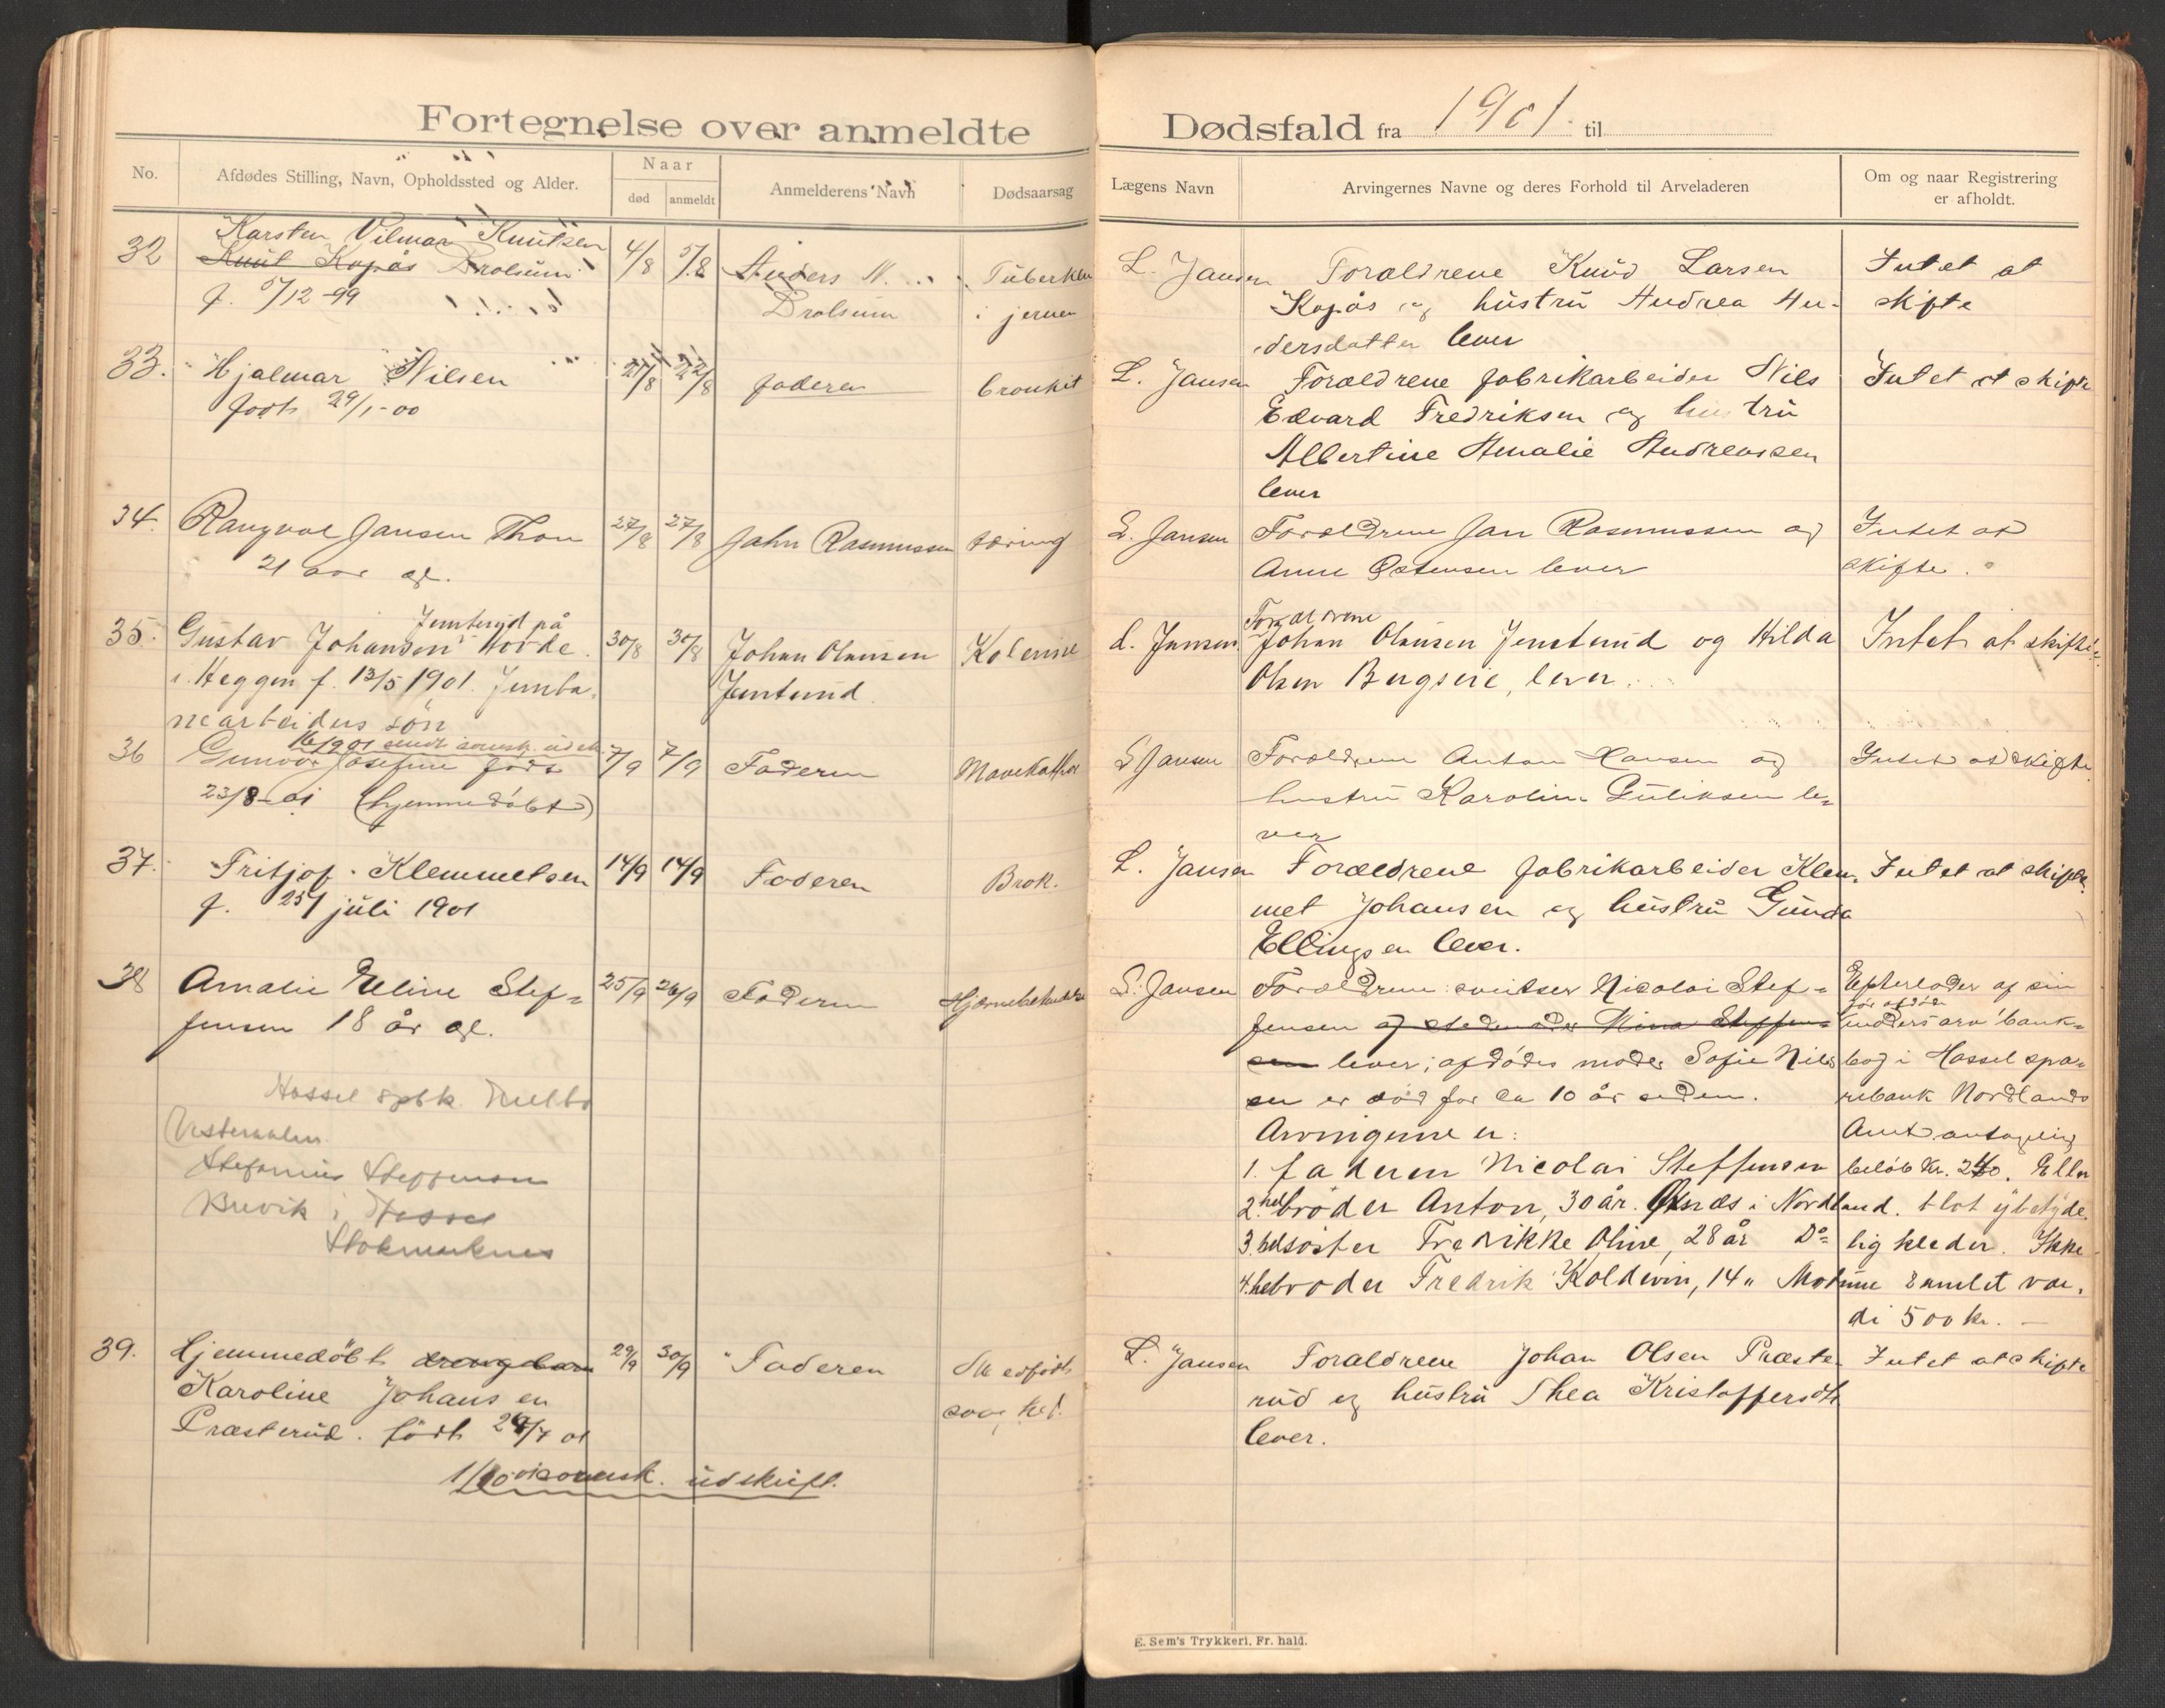 Fortegnelse over anmeldte Dødsfald fra 1901 til
No. Afdødes Stilling, Navn, Opholdssted og Alder. Naar død anmeldt Anmelderens Navn Dødsaarsag
Lægens Navn Arvingernes Navne og deres Forhold til Arveladeren Om og naar Registrering er afholdt.
32 Karsten Vilmar Knutsen 4/8 5/8 Anders N. Tuberkler L. Jansen Forældrene Knud Larsen Intet at
Knut Kopås Drolsum Drolsum i jernen Kopås og hustru Andrea An- skifte
f. 5/12-99 dersdatter lever
33. Hjalmar Nilsen 21/8 22/8 Faderen bronkit L. Jansen Forældrene fabrikarbeider Nils Intet at skifte
født 29/1-00 Edvard Fredriksen og hustru
Albertine Amalie Andreassen
lever
34. Rangval Jansen Thon 27/8 27/8 Jahn Rasmussen tæring L. Jansen Forældrene Jan Rasmussen og Intet at
21 aar gl. Anne Østensen lever skifte.
35. Jenstunds på Forældrene
Gustav Johansen Horde 30/8 30/8 Johan Olausen Kolerine L. Jansen Johan Olausen Jenstund og Hilda Intet at skifte
i Heggen f. 13/5 1901. Jernba- Jenstund Olsen Bergseie, lever.
nearbeiders søn
36 16/9 01 sendt udsk.
Gunvor Josefine født 7/9 7/9 Faderen Mavekathar L Jansen Forældrene Anton Hansen og Intet at skifte
23/8-01 (hjemmedøbt) hustru Karoline Guliksen le-
ver
37. Fritjof Klemmetsen 14/9 14/9 Faderen Brok. L. Jansen Forældrene fabrikarbeider Klem- Intet at skifte
f. 25/ juli 1901 met Johansen og hustru Gunda
Ellingsen lever.
38 Amalie Eline Stef- 25/9 26/9 Faderen Hjernebetændelse L. Jansen Forældrene: sveitser Nicolai Stef- Efterlader af sin
fensen 18 år gl. fensen og stedmoder Nina Steffen- før afdøde moders arv bank-
sen lever; afdødes moder Sofie Nils bog i Hassel spa-
Hassel spbk. Melbo en er død for ca 10 år siden. rebank Nordlands
Vesteraalen Arvingerne er: Amt antagelig
Stefanius Steffensen 1. faderen Nicolai Steffensen beløb Kr. 240. Eller
Brevik i Hassel 2. helbroder Anton, 30 år. Øxnæs i Nordland. blot ubetyde
Stokmarknes 3. helsøster Fredrikke Oline, 28 år Do lig klæder. Ikke
4. helbroder Fredrik Koldevin, 14 " Modum samlet vær-
di 500 kr. —
39. Hjemmedøbt drengebarn 29/9 30/9 Faderen Medfødt svaghed. L. Jansen Forældrene Johan Olsen Præste Intet at skifte
Karoline Johansen rud og hustru Thea Kristoffersdt
Præsterud. født 29/7 01 lever.
1/10 01 udskrift.
E. Sem's Trykkeri, Fr. hald.